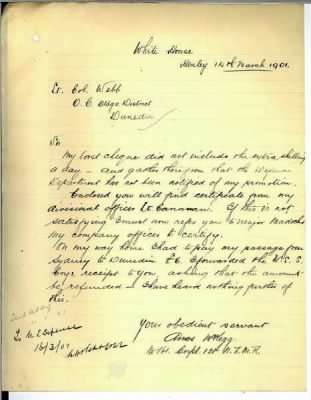 White House
Henley 14th March 1901.
Lt. Col. Webb
O. C. Otago District
Dunedin
Sir
My last cheque did not include the extra shilling
a day - and gather therefrom that the Defence
Department has not been notified of my promotion.
Enclosed you will find certificate from my
divisional officer to Canaman. If this is not
satisfying I must now refer you to Major Maddocks
my company officer to certify.
On my way here I had to pay my passage from
Sydney to Dunedin £6. I forwarded the U.S.S.
Coy's receipt to you, asking that the amount
be refunded - I have heard nothing further of
this.
Your obedient servant
Amos
Corpl 1st N.Z.M.R.
To N.Z. Defence
16/3/01